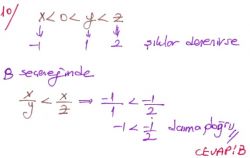 10/ x < 0 < y < z
↓ ↓ ↓
-1 1 2 şıklar denenirse
B seçeneğinde
x/y < x/z ⇒ -1/1 < -1/2
-1 < -1/2 daima doğru
CEVAP: B